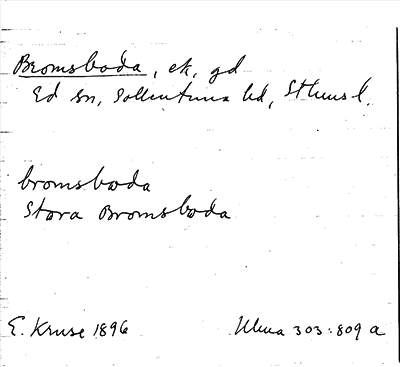 Bromsboda, ek, gd
Ed sn, Sollentuna hd, Sthlms l.
bromsboda
Stora Bromsboda
E. Kruse 1896 Ulma 303:809 a